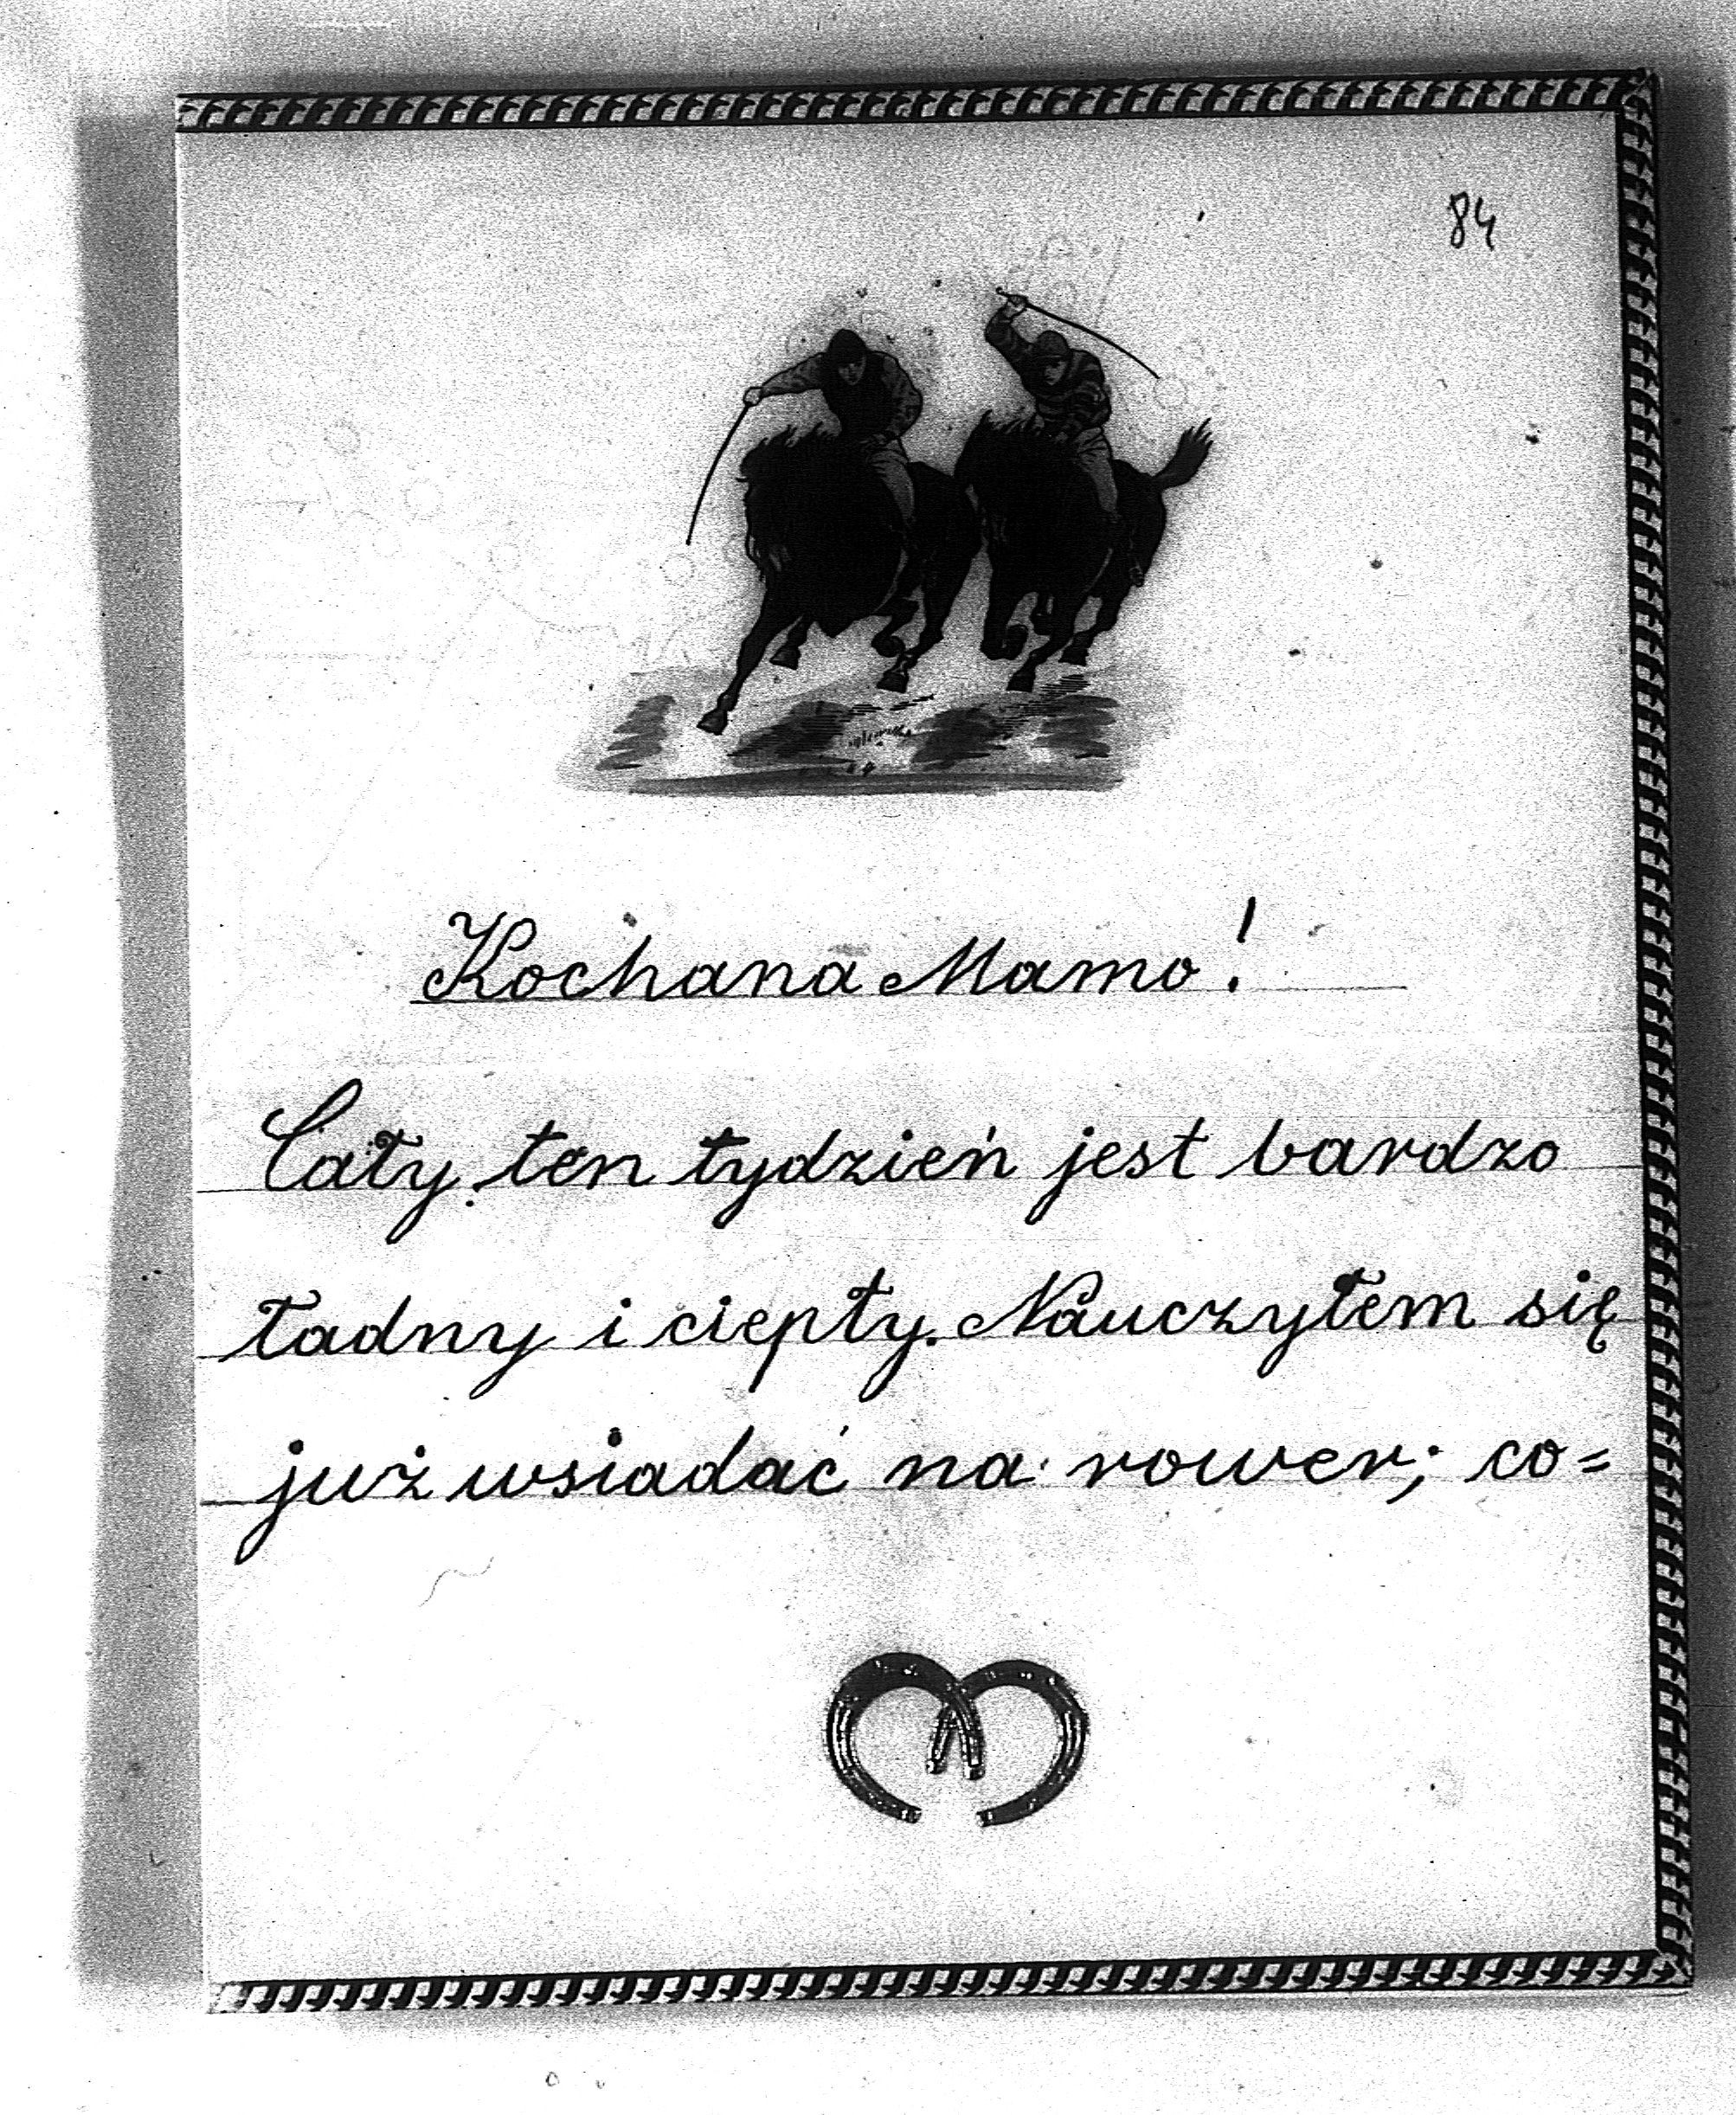 84
Kochana Mamo!
Cały ten tydzień jest bardzo
ładny i ciepły. Nauczyłem się
już wsiadać na rower; co=